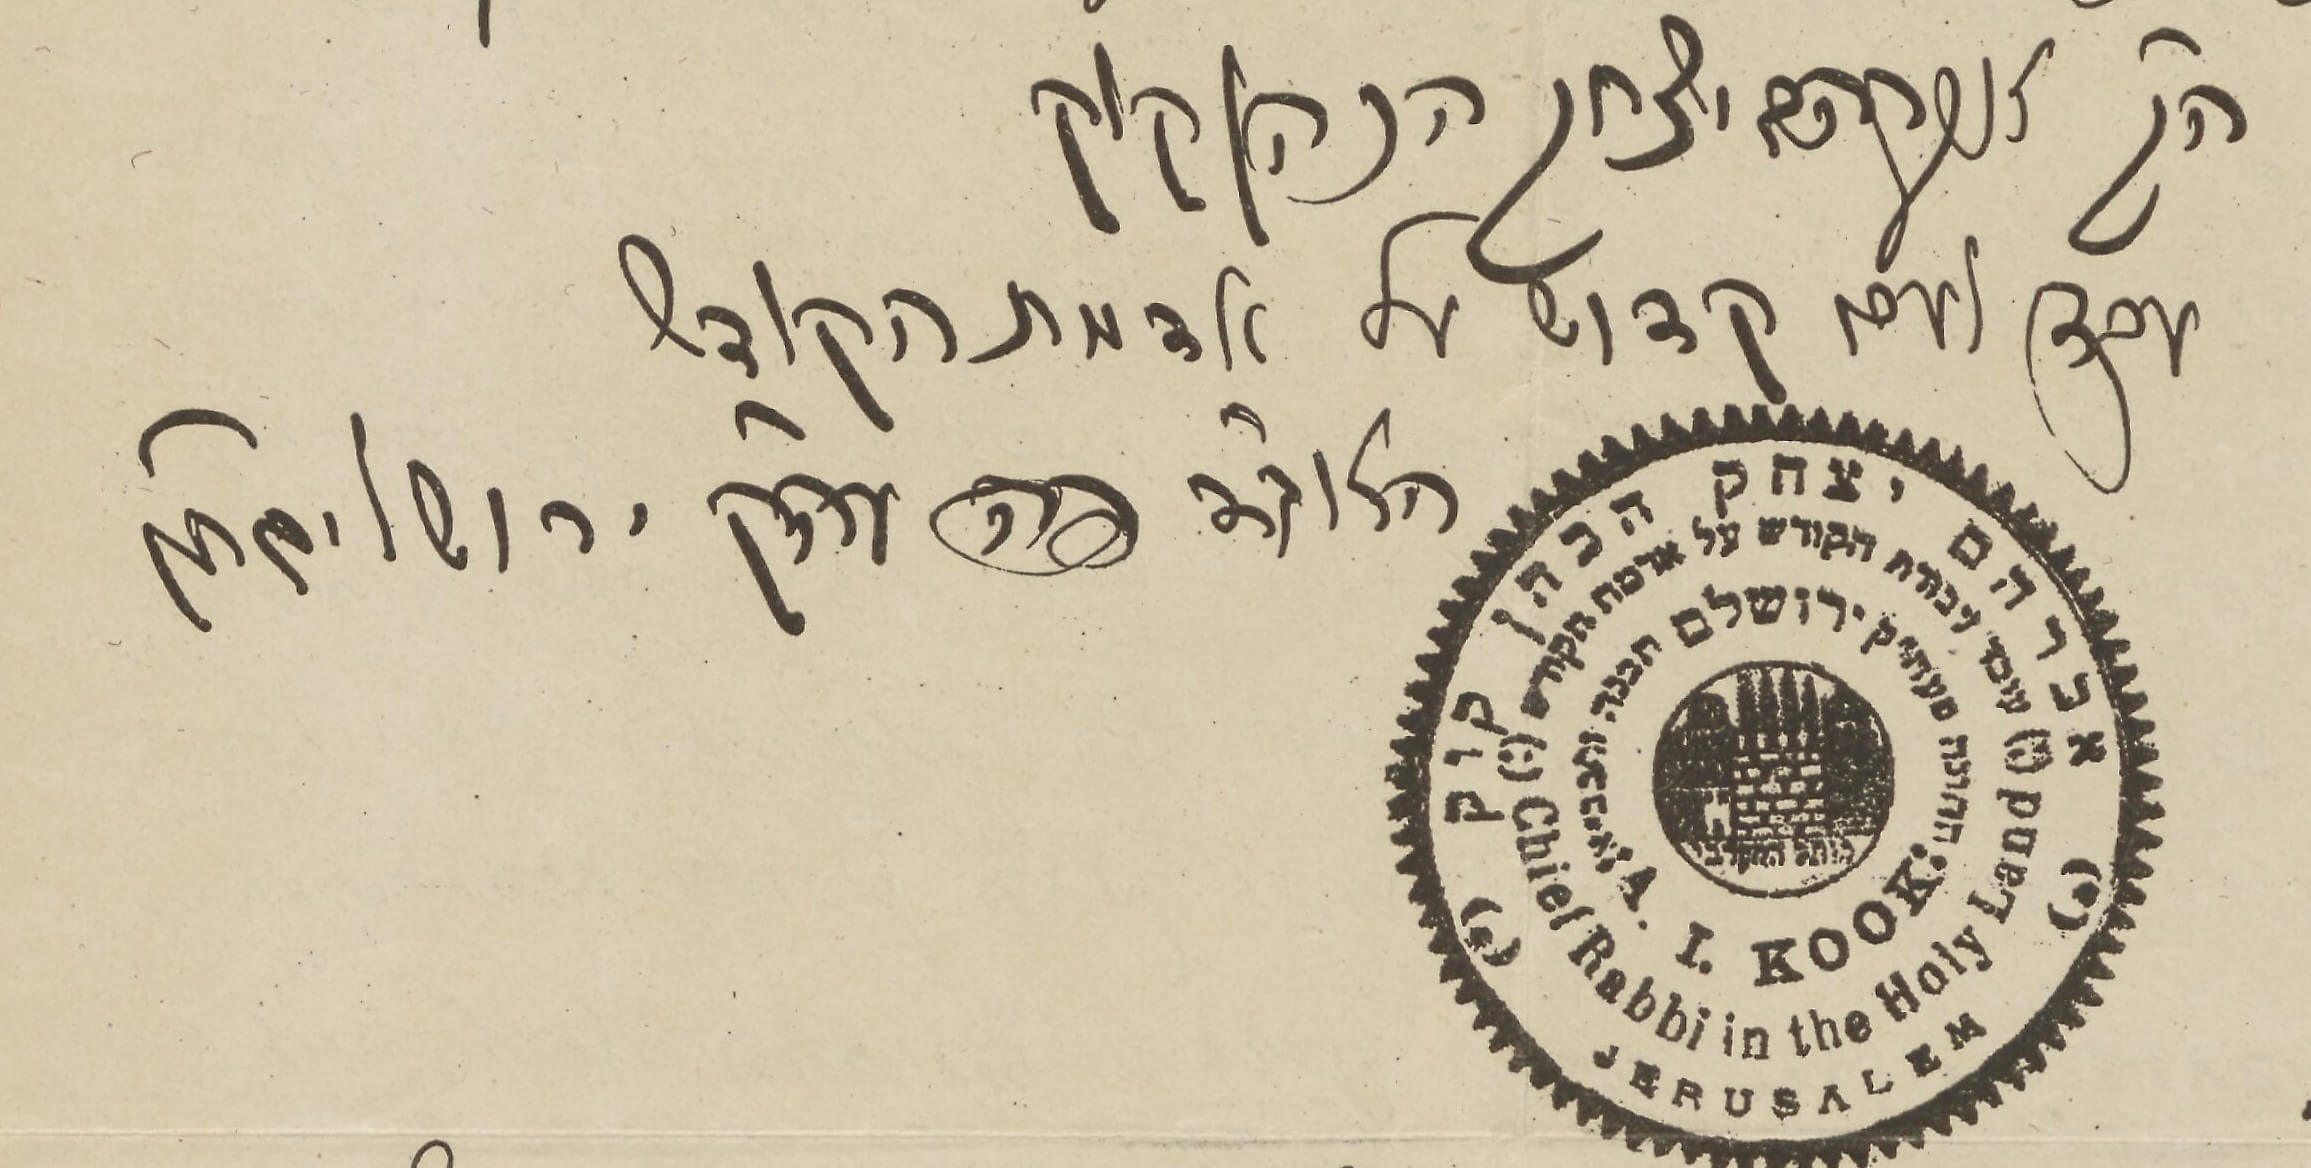 הק' אברהם יצחק הכהן קוק
עבד לעם קדוש על אדמת הקודש
הראב"ד פה עה"ק ירושלים
אברהם יצחק הכהן קוק
עבודת הקודש על אדמת הקודש
ירושלם תבנה ותכונן
הכותל המערבי
A. I. KOOK
Chief Rabbi in the Holy Land
JERUSALEM